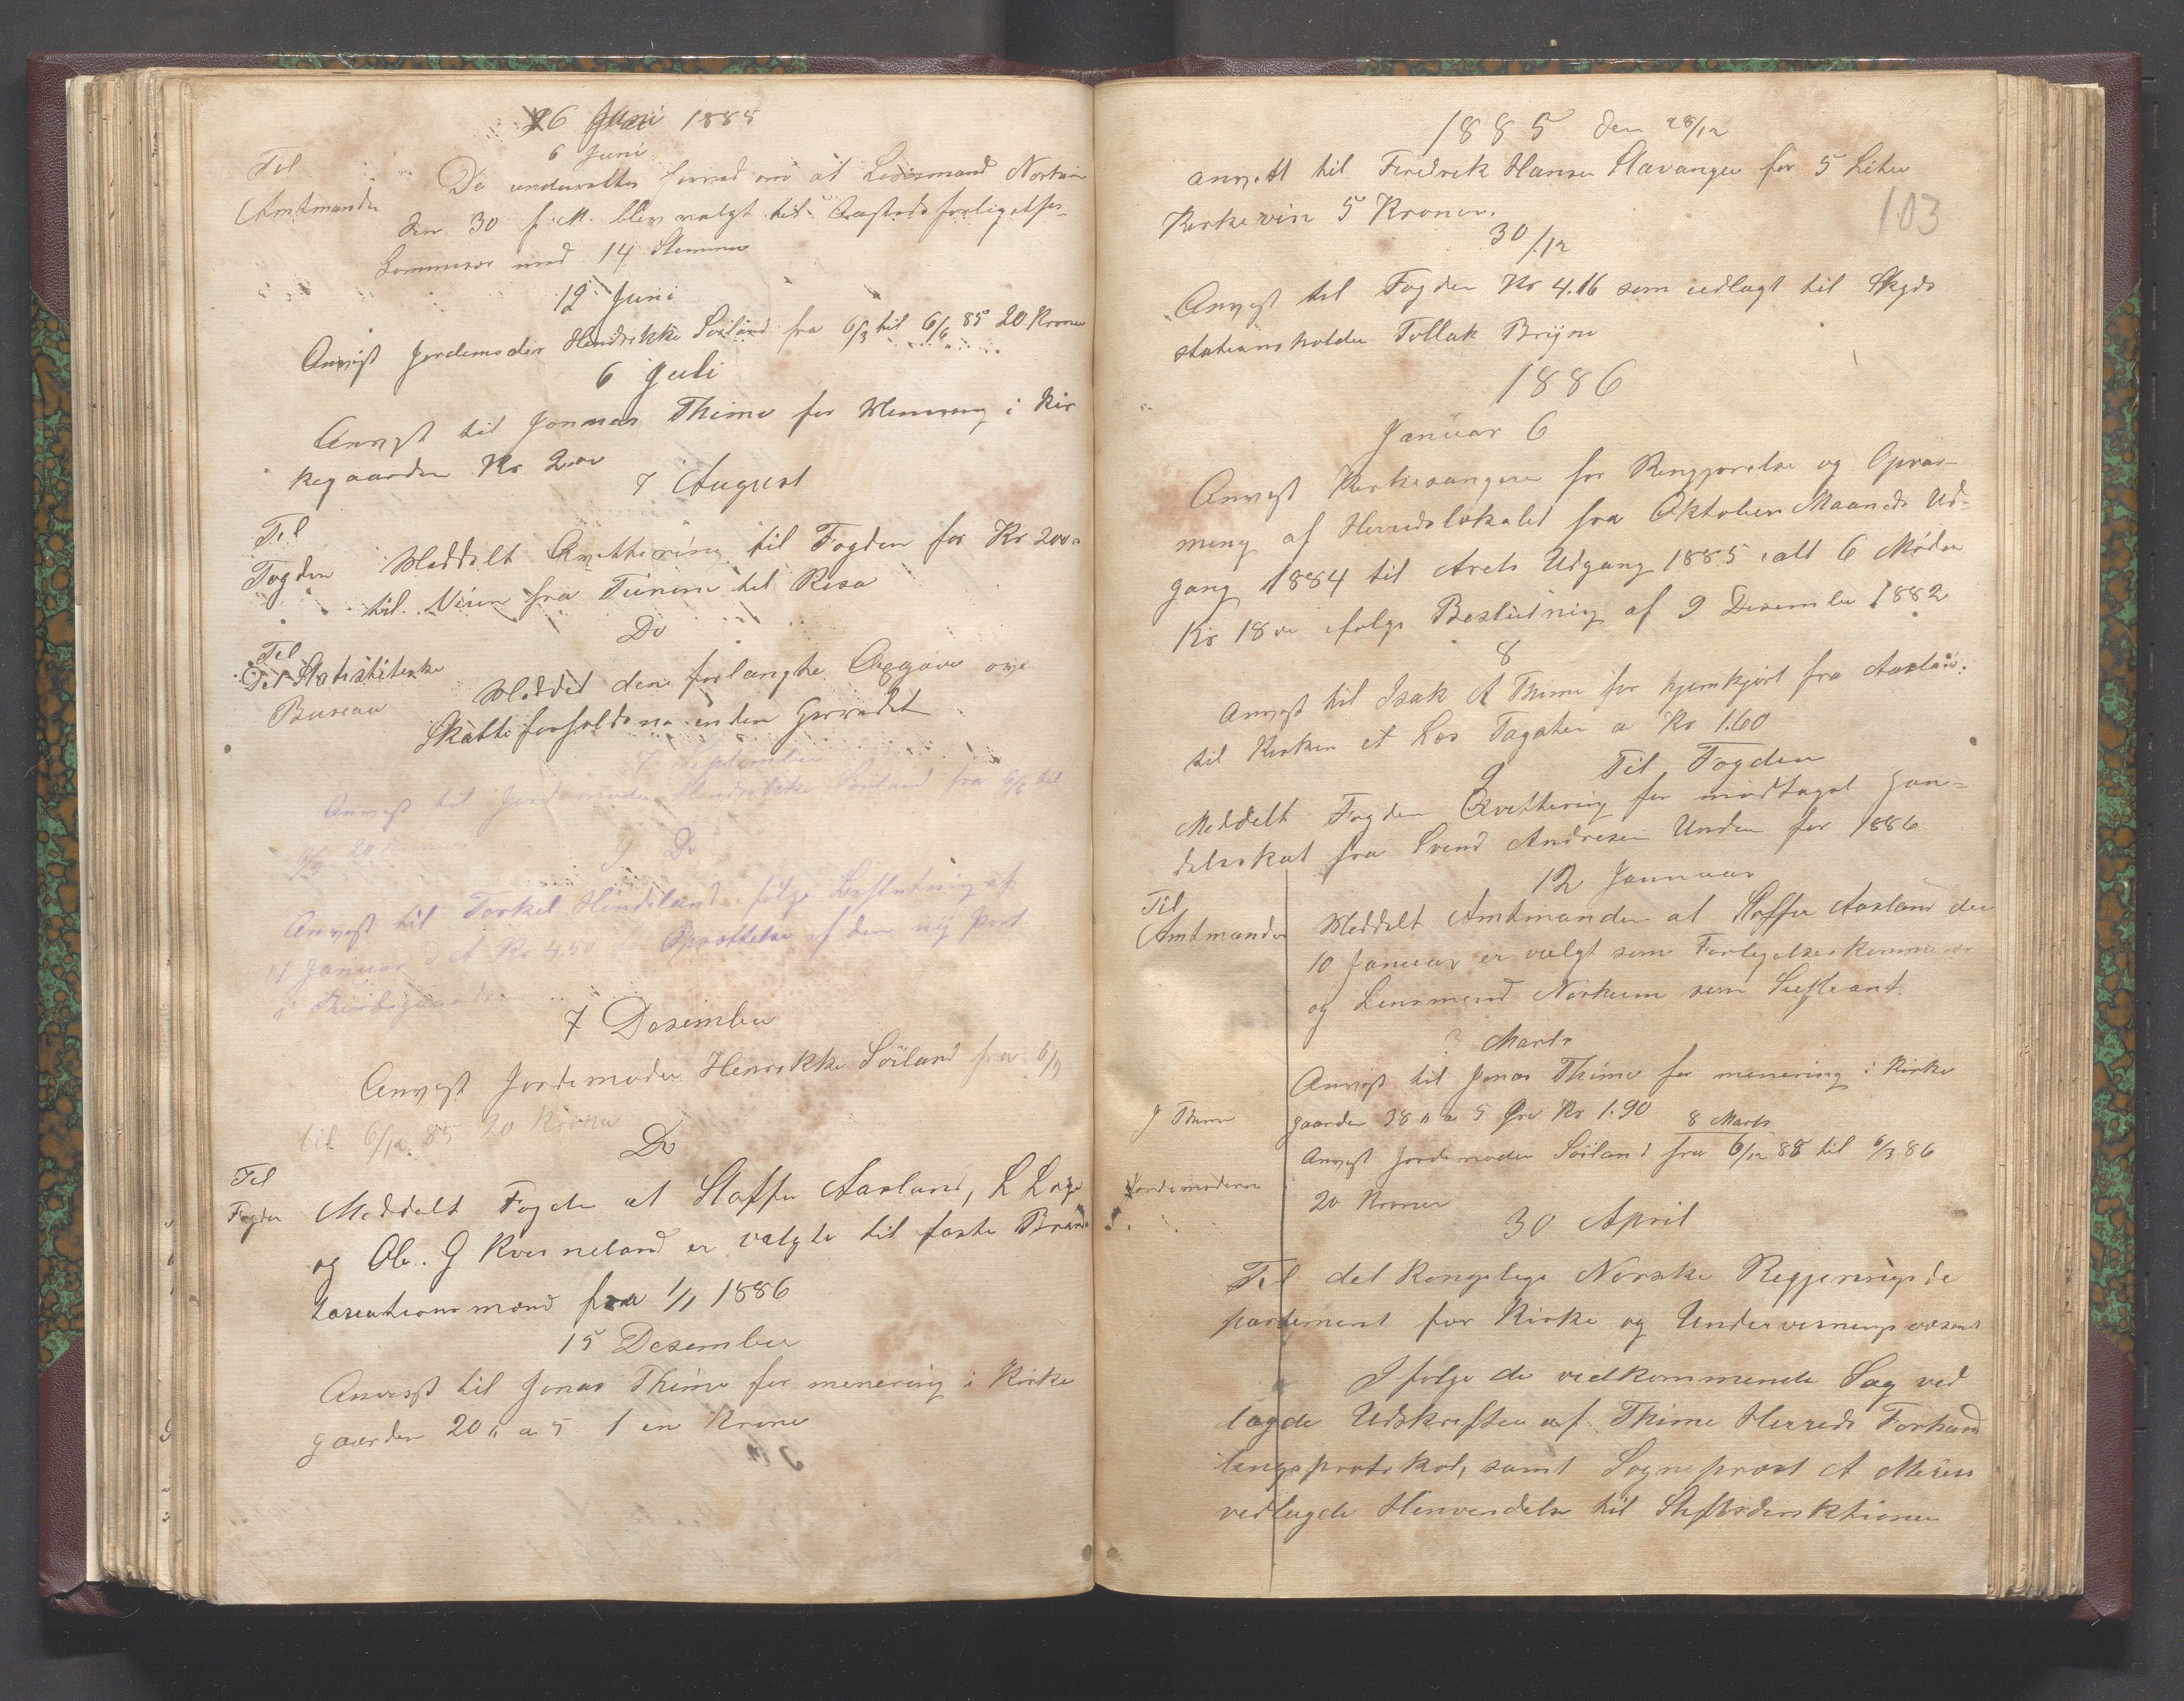 6 Juni 1885
6 Juni
Til
Amtmanden
De underrettes herved om at Lensmand Norheim
den 30 f. M. blev valgt til forligelses-
Commisær med 14 Stemmer
12 Juni
Anvist Jordemoder Hendrikke Söiland fra 6/3 til 6/6 85 20 Kroner
6 Juli
Anvist til Jonas Thime for Menering i Kir
kegaarden Kr 2.00
7 August
Til
Fogden
Meddelt Qvittering til Fogden for Kr 200
til Veien fra Tunim til Risa
Do
Til
Det Statistiske
Bureau
Meddelt den forlangte Opgave om
Skatteforholdene inden Herredet
7 September
Anvist til Jordemoder Hendrikke Söiland fra 6/6 til
6/9 20 Kroner
9 Do
Anvist til Torkel Hindeland ifölge Beslutning af
17 Januar d A Kr 4.50 for Opsættelse af den ny Port
i Kirkegaarden
7 Desember
Anvist Jordemoder Henrikke Söiland fra 6/9
til 6/12 85 20 Kroner
Do
Til
Fogden
Meddelt Fogden at Staffen Aasland, L Lege
og Ole G Kverneland er valgte til faste Brand
taxationsmænd fra 1/1 1886
15 Desember
Anvist til Jonas Thime for menering i Kirke
gaarden 20 a 5 1 en Krone
1885 den 28/12
anvist til Fredrik Hansen Stavanger for 5 Liter
Kirkevin 5 Kroner.
103
30/12
Anvist til Fogden Kr 4.16 som udlagt til Skyds
stationsholder Tollak Bryne
1886
Januar 6
Anvist Kirkesangeren for Rengjørelse og Opvar-
ming af Herredslokalet fra Oktober Maaneds Ud-
gang 1884 til Arets Udgang 1885 ialt 6 Møder
Kr 18 00 ifølge Beslutning af 9 Desember 1882
8
Anvist til Isak A Thime for hjemkjört fra Aaslan.
til Kirken et Læs Tagsten a Kr 1.60
9 Til Fogden
Meddelt Fogden Qvittering for modtaget Han-
delsskat fra Svend Andresen Unden for 1886
12 Januar
Til
Amtmanden
Meddelt Amtmanden at Staffen Aasland den
10 Januar er valgt som Forligelseskommisær
og Lensmand Norheim som Supleant.
Marts
J Thime
Anvist til Jonas Thime for menering i Kirke
gaarden 38 a 5 Øre Kr 1.90
8 Marts
Jordemoderen
S.
Anvist Jordemoder Söiland fra 6/12 85 til 6/3 86
20 Kroner
30 April
Til det Kongelige Norske Regjerings de
partement for Kirke og Undervisningsvæsenet
I følge de vedkommende Sag ved
lagde Udskrifter af Thime Herreds Forhand
lingsprotokol, samt Sogneprest A
vedlagde Henvendelse til Stiftsdirektionen